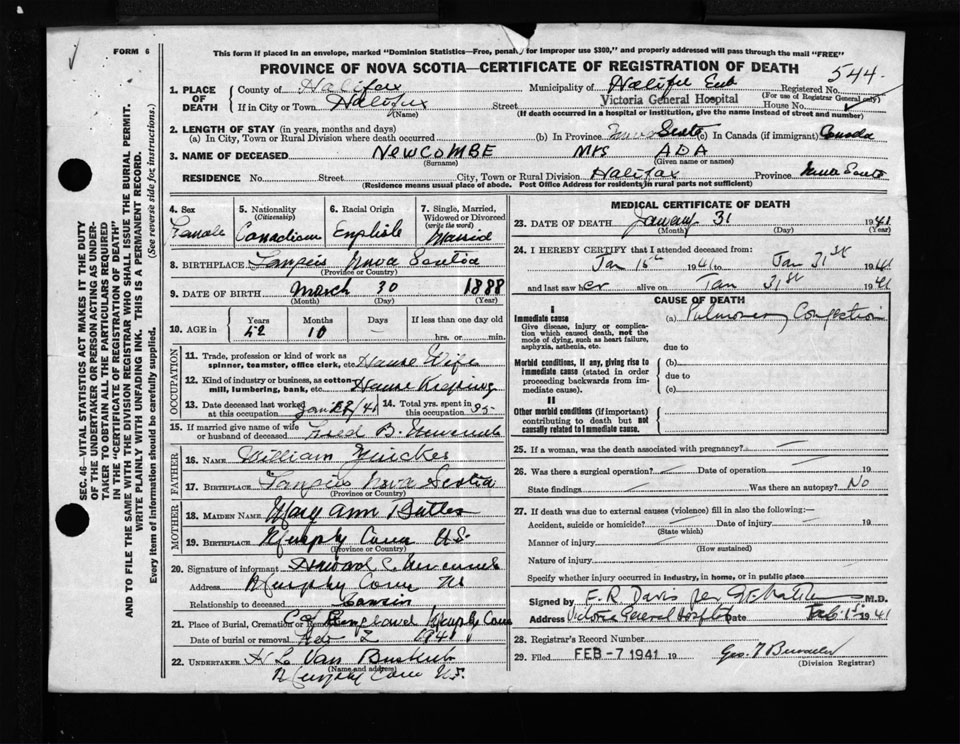 FORM 6
This form if placed in an envelope, marked "Dominion Statistics—Free, penalty for improper use $300," and properly addressed will pass through the mail "FREE"
PROVINCE OF NOVA SCOTIA—CERTIFICATE OF REGISTRATION OF DEATH
544.
1. PLACE OF DEATH
County of Halifax
Municipality of Halifax Sub
Registered No.
(For use of Registrar General only)
If in City or Town Halifax
(Name)
Street Victoria General Hospital House No.
(If death occurred in a hospital or institution, give the name instead of street and number)
2. LENGTH OF STAY (in years, months and days)
(a) In City, Town or Rural Division where death occurred
(b) In Province Nova Scotia (c) In Canada (if immigrant) Canada
3. NAME OF DECEASED NEWCOMBE MRS ADA
(Surname) (Given name or names)
RESIDENCE No. Street City, Town or Rural Division Halifax Province Nova Scotia
(Residence means usual place of abode. Post Office Address for residents in rural parts not sufficient)
4. Sex Female
5. Nationality (Citizenship) Canadian
6. Racial Origin English
7. Single, Married, Widowed or Divorced (write the word) Married
8. BIRTHPLACE Nova Scotia
(Province or Country)
9. DATE OF BIRTH March 30 1888
(Month) (Day) (Year)
10. AGE in Years Months Days If less than one day old
52 10 — hrs. or min.
OCCUPATION
11. Trade, profession or kind of work as spinner, teamster, office clerk, etc. House Wife
12. Kind of industry or business, as cotton mill, lumbering, bank, etc. House Keeping
13. Date deceased last worked at this occupation Jan /41
14. Total yrs. spent in this occupation 35
15. If married give name of wife or husband of deceased Fred B. Newcomb
FATHER
16. NAME William
17. BIRTHPLACE Nova Scotia
(Province or Country)
MOTHER
18. MAIDEN NAME Mary Ann Butler
19. BIRTHPLACE Murphy Cove N.S.
(Province or Country)
20. Signature of informant Newcomb
Address Murphy Cove NS
Relationship to deceased Cousin
21. Place of Burial, Cremation or Removal Murphy Cove
Date of burial or removal Feb 2 1941
22. UNDERTAKER H L Van Buskirk
(Name and address)
Murphy Cove N.S.
MEDICAL CERTIFICATE OF DEATH
23. DATE OF DEATH January 31 1941
(Month) (Day) (Year)
24. I HEREBY CERTIFY that I attended deceased from:
Jan 15th 1941 to Jan 31st 1941
and last saw her alive on Jan 31st 1941
CAUSE OF DEATH
I
Immediate cause
Give disease, injury or complication which caused death, not the mode of dying, such as heart failure, asphyxia, asthenia, etc.
(a) Pulmonary Congestion
due to
Morbid conditions, if any, giving rise to immediate cause (stated in order proceeding backwards from immediate cause).
(b)
due to
(c)
II
Other morbid conditions (if important) contributing to death but not causally related to immediate cause.
25. If a woman, was the death associated with pregnancy?
26. Was there a surgical operation? Date of operation 19
State findings Was there an autopsy? No
27. If death was due to external causes (violence) fill in also the following:—
Accident, suicide or homicide? Date of injury 19
(State which)
Manner of injury
(How sustained)
Nature of injury
Specify whether injury occurred in industry, in home, or in public place
Signed by F. R. Davis per M.D.
Address Victoria General Hospital Date Feb. 1st 1941
28. Registrar's Record Number
29. Filed FEB -7 1941 19 Geo. T
(Division Registrar)
SEC. 46—VITAL STATISTICS ACT MAKES IT THE DUTY
OF THE UNDERTAKER OR PERSON ACTING AS UNDER-
TAKER TO OBTAIN ALL THE PARTICULARS REQUIRED
IN THE "CERTIFICATE OF REGISTRATION OF DEATH"
AND TO FILE THE SAME WITH THE DIVISION REGISTRAR WHO SHALL ISSUE THE BURIAL PERMIT.
WRITE PLAINLY WITH UNFADING INK. THIS IS A PERMANENT RECORD.
Every item of information should be carefully supplied. (See reverse side for instructions.)